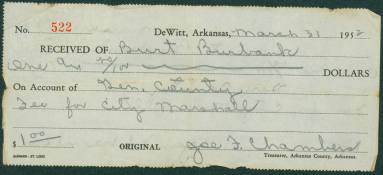 No. 522 DeWitt, Arkansas, March 31 1952
RECEIVED OF Burt Burbank
One and no/100 DOLLARS
On Account of Gen. County
Fee for City Marshall
$1.00 ORIGINAL Joe F. Chambers
Treasurer, Arkansas County, Arkansas.